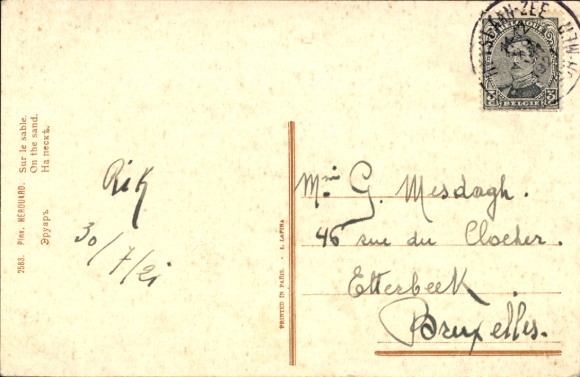 2583. Pinx. HÉROUARD. Sur le sable.
On the sand.
Эруаръ На пескѣ.
Rik
30/7/21
PRINTED IN PARIS. - L. LAPINA
BELGIQUE
BELGIË
Mme G. Mesdagh.
46 rue du Clocher.
Etterbeek
Bruxelles.